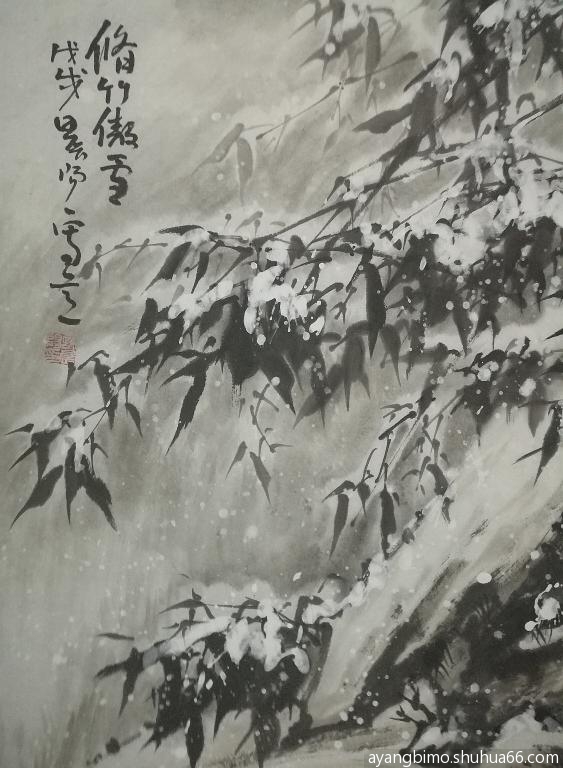 脩竹傲雪
戊戌
写意
ayangbimo.shuhua66.com